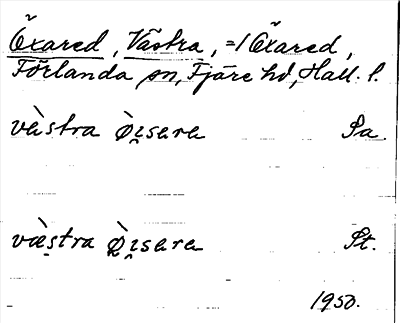 Öxared, Västra, =/Öxared,
Förlanda sn, Fjäre hd, Hall. l.
västra Òi̯sara Sa.
væstra Ò̤i̯sara St.
1950.